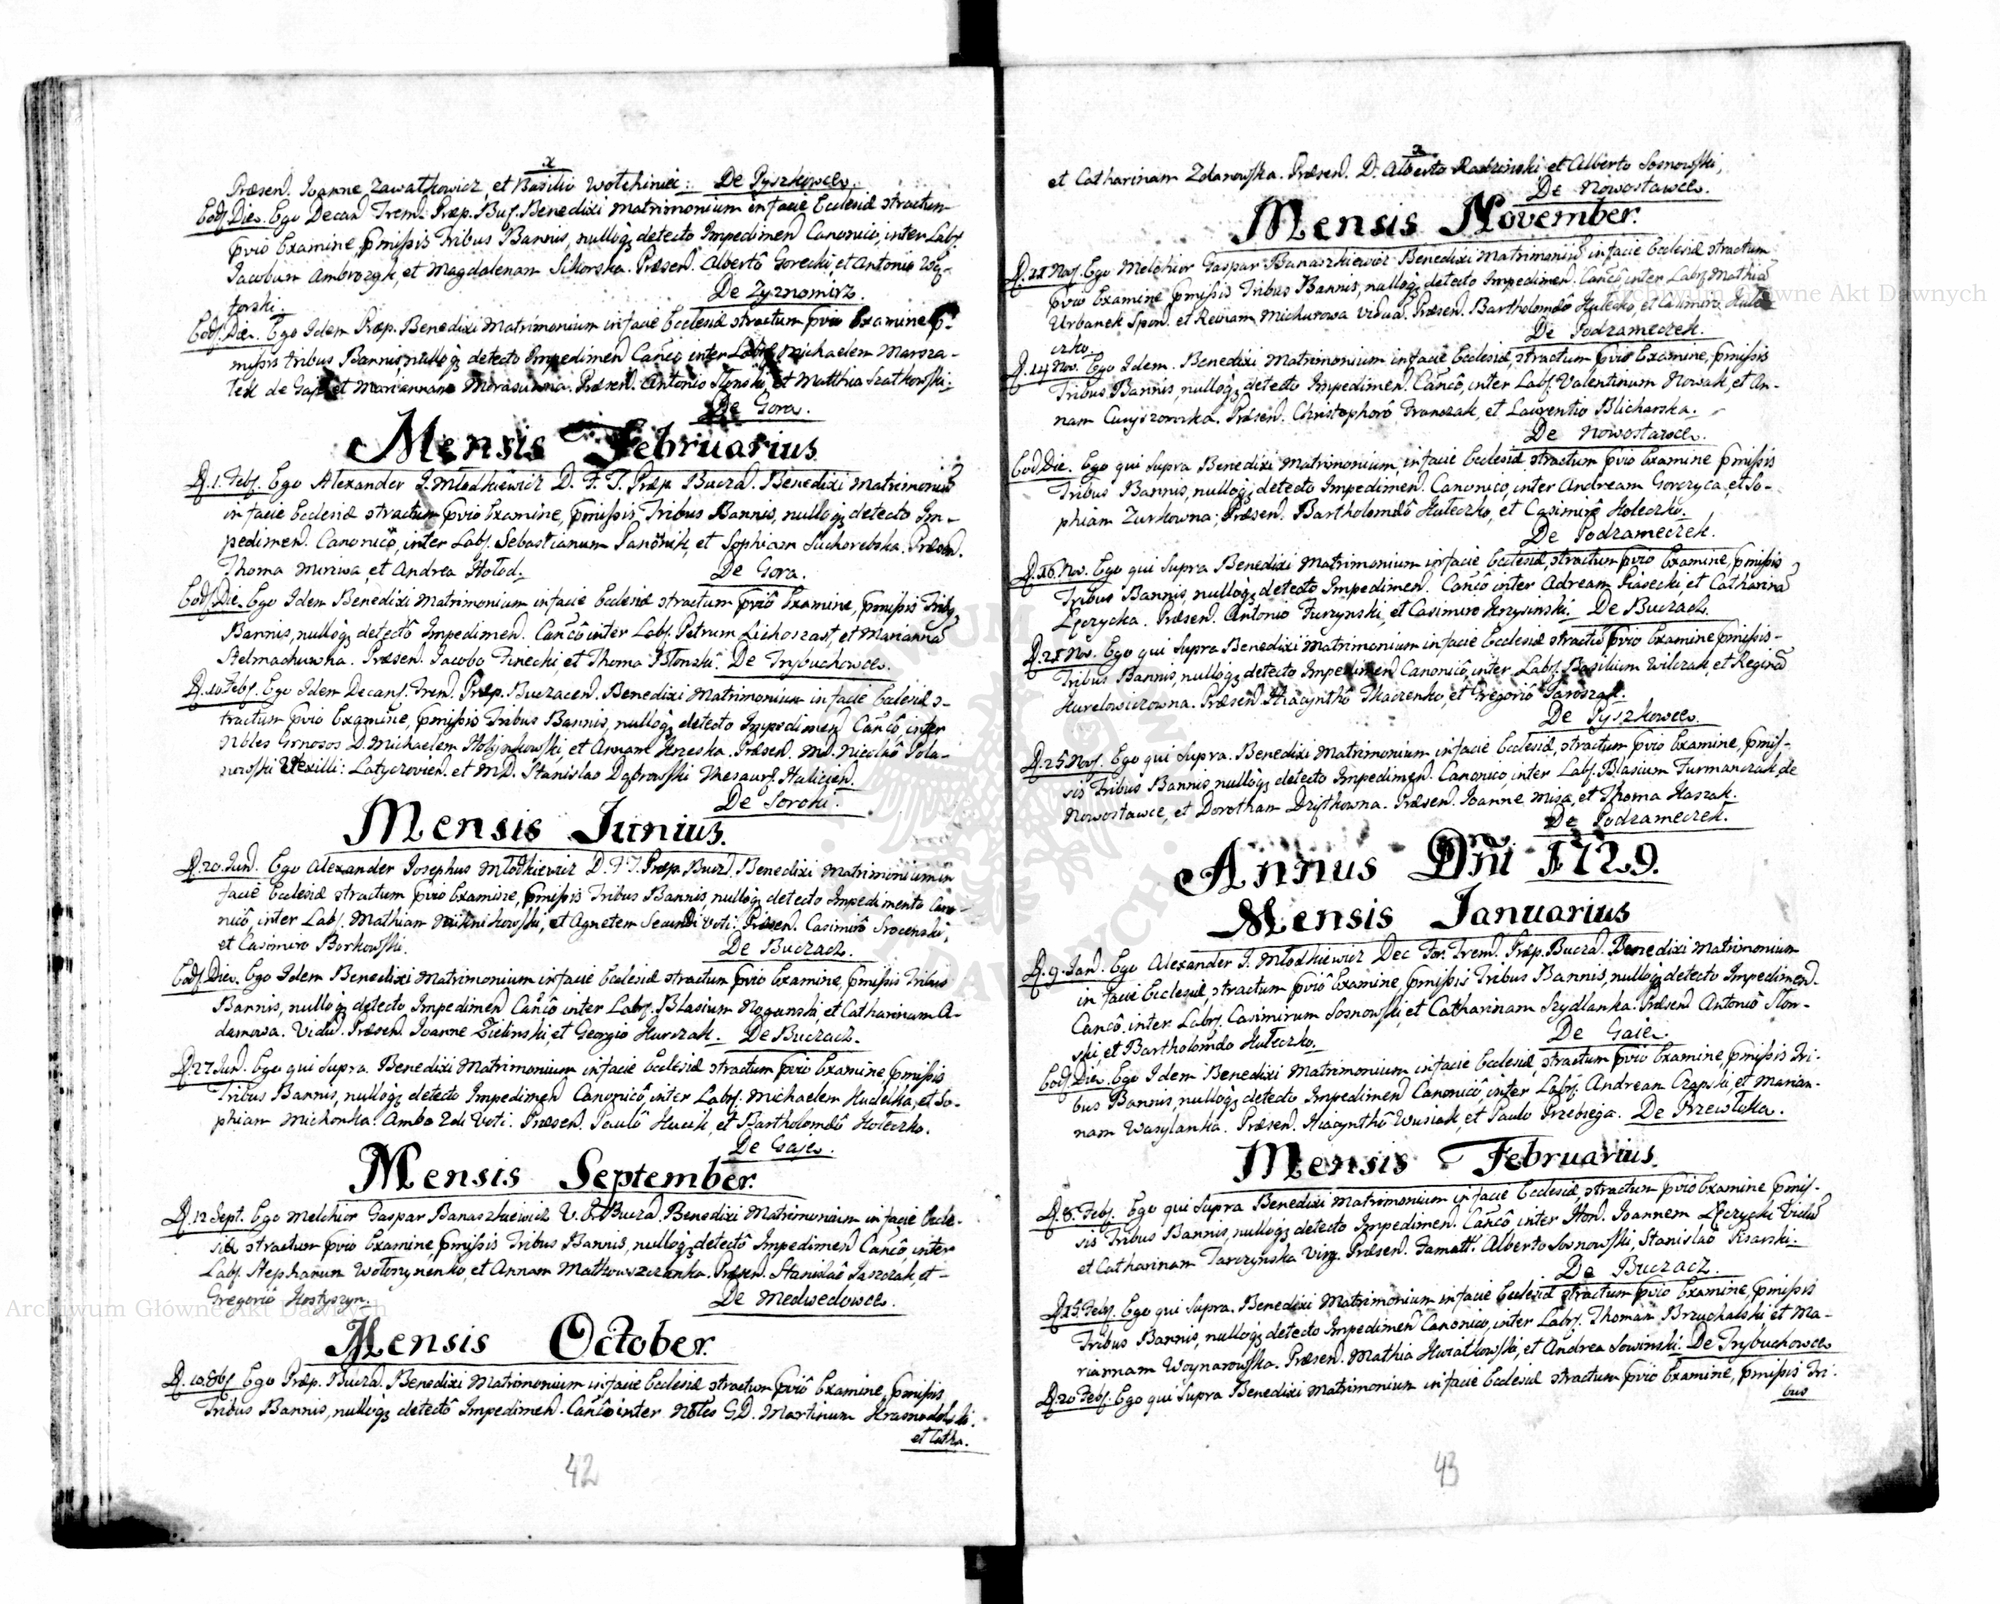 x
Præsen. Joanne Zawałkowicz et Basilio Wołchiniec: De Pyszkowce.
Eod. Die. Ego Decan Trem. Præp. Buc. Benedixi Matrimonium in facie Ecclesiæ stractum
pvio Examine, pmissis Tribus Bannis, nulloq; detecto Impedimen Canonico, inter Lab.
Jacobum Ambrozyk, et Magdalenam Sikorska. Præsen. Alberto Gorecki, et Antonio Wę-
torski.
De Zyznomirz.
Eod. Die. Ego Idem Præp. Benedixi Matrimonium in facie Ecclesiæ stractum pvio Examine p-
missis tribus Bannis, nulloq; detecto Impedimen Canco inter Lab. Michaelem Marsza-
łek de Gaje et Mariannam Morasunna. Præsen. Antonio Słonski, et Matthia Szatkowski.
De Gora.
Mensis Februarius
D. 1. Feb. Ego Alexander J. Młodkiewicz D. F. T. Præp. Buczac. Benedixi Matrimonium
in facie Ecclesiæ stractum pvio Examine, pmissis Tribus Bannis, nulloq; detecto Im-
pedimen. Canonico, inter Lab. Sebastianum Janonik, et Sophiam Suchorebska. Præsen.
Thoma Murzwa, et Andrea Hołod.
De Gora.
Eod. Die. Ego Idem Benedixi Matrimonium in facie Ecclesiæ stractum pviô Examine, pmissis Tribq
Bannis, nulloq; detectô Impedimen. Cancô inter Lab. Petrum Lichoszast et Marianna
Stelmachuwna. Præsen. Jacobo Firecki, et Thoma Błonski. De Trybuchowce.
D. 10 Feb. Ego Idem Decan. Trem. Præp. Buczacen. Benedixi Matrimonium in facie Ecclesiæ s-
tractum pvio Examine, pmissis Tribus Bannis, nulloq; detecto Impedimen Cancô, inter
Nbles Grnosos D. Michaelem Hołynkowski, et Annam Krzeska. Præsen. MD. Nicolaô Pola-
nowski Vexilli: Latyczovien. et MD. Stanislao Dąbrowski Thesaur. Halicien.
De Soroki.
Mensis Junius.
D. 20. Jun. Ego Alexander Josephus Młodkiewicz D. F. T. Præp. Bucz. Benedixi Matrimonium in
facie Ecclesiæ stractum pvio Examine, pmissis Tribus Bannis, nulloq; detecto Impedimento Cano-
nicô, inter Lab. Mathiam Miknikowski, et Agnetem Secundi voti. Præsen. Casimirô Srocenski,
et Casimiro Borkowski.
De Buczacz.
Eod. Die. Ego Idem Benedixi Matrimonium in facie Ecclesiæ stractum pvio Examine, pmissis Tribus
Bannis, nulloq; detecto Impedimen Cancô inter Lab. Blasium Roganski, et Catharinam A-
damowa. Vidu. Præsen. Joanne Zielinski, et Georgio Hurszak. De Buczacz.
D. 27 Jun. Ego qui supra. Benedixi Matrimonium in facie Ecclesiæ stractum pvio Examine, pmissis
Tribus Bannis, nulloq; detecto Impedimen Canonicô, inter Lab. Michaelem Hudelka, et So-
phiam Michonka. Ambo 2di Voti. Præsen. Paulô Hucik, et Bartholomæô Hołeczko.
De Gaje.
Mensis September.
D. 12 Sept. Ego Melchior Gaspar Banaszkiewicz V. E. Bucza. Benedixi Matrimonium in facie Eccle-
siæ stractum pvio Examine, pmissis Tribus Bannis, nulloq; detectô Impedimen Cancô, inter
Lab. Stephanum Wołonynenko, et Annam Matkowszczanka. Præsen. Stanislaô Jaszczak et
Gregoriô Hostyszyn.
De Medwedowce.
Mensis October.
D. 10. 8b. Ego Præp. Bucza. Benedixi Matrimonium in facie Ecclesiæ stractum pviô Examine, pmissis
Tribus Bannis, nulloq; detectô Impedimen. Cancô inter Nbles GD. Martinum Krasnodębski.
et Catha.
42
x
et Catharinam Zdanowska. Præsen. D. Alberto Radzinski et Alberto Sosnowski,
De Nowostawce.
Mensis November.
D. 11 Nov. Ego Melchior Gaspar Banaszkiewicz Benedixi Matrimoniû in facie Ecclesiæ stractum
pvio Examine pmissis Tribus Bannis, nulloq; detecto Impedimen. Cancô, inter Lab. Mathia
Urbanek Spon. et Reinam Michurowa vidua. Præsen. Bartholomæô Hułecko, et Casimiro Hułe-
czko.
De Podzameczek.
D. 14 Nov. Ego Idem. Benedixi Matrimonium in facie Ecclesiæ, stractum pvio Examine, pmissis
Tribus Bannis, nulloq; detecto Impedimen. Cancô, inter Lab. Valentinum Nowak, et An-
nam Curyszowska. Præsen. Christophorô Franczak, et Laurentio Blicharska.
De Nowostawce.
Eod. Die. Ego qui supra Benedixi Matrimonium, in facie Ecclesiæ stractum pvio Examine pmissis
Tribus Bannis, nulloq; detecto Impedimen. Canonico, inter Andream Gorczyca, et So-
phiam Zurkowna; Præsen. Bartholomæô Hułeczko, et Casimirô Hołeczko.
De Podzameczek.
D. 16. Nov. Ego qui supra Benedixi Matrimonium in facie Ecclesiæ, stractum pvio Examine, pmissis
Tribus Bannis, nulloq; detecto Impedimen. Cancô inter Adream Piasecki, et Catharina
Łęczycka. Præsen. Antonio Furzynski, et Casimiro Krzysinski. De Buczacz.
D. 21 Nov. Ego qui supra Benedixi Matrimonium in facie Ecclesiæ stractû pvio Examine pmissis-
Tribus Bannis, nulloq; detecto Impedimen Canonicô, inter Lab. Basilium Wilczak, et Reginâ
Hurelowiczowna. Præsen Hiacynthô Tkaczenko, et Gregoriô Jaroszak.
De Pyszkowce.
D. 25 Nov. Ego qui supra. Benedixi Matrimonium in facie Ecclesiæ, stractum pvio Examine, pmis-
sis Tribus Bannis, nulloq; detecto Impedimen. Canonico, inter Lab. Blasium Furmanczuk, de
Nowostawce, et Dorotham Dziftkowna. Præsen. Joanne Misa, et Thoma Haszak.
De Podzameczek.
Annus Dñi 1729.
Mensis Januarius
D. 9. Jan. Ego Alexander J. Młodkiewicz Dec For. Trem. Præp. Bucza. Benedixi Matrimonium
in facie Ecclesiæ, stractum pviô Examine, pmissis Tribus Bannis, nulloq; detecto Impedimen.
Cancô. inter Lab. Casimirum Sosnowski, et Catharinam Szydlanka. Præsen Antoniô Słon-
ski, et Bartholomæo Hułeczko.
De Gaje.
Eod. Die. Ego Idem Benedixi Matrimonium in facie Ecclesiæ, stractum pvio Examine, pmissis Tri-
bus Bannis, nulloq; detecto Impedimen Canonicô, inter Lab. Andream Czapski, et Marian-
nam Wasylanka. Præsen. Hiacynthô Wusiak, et Paulo Przebięga. De Przewłoka.
Mensis Februarius.
D. 8. Feb. Ego qui supra Benedixi Matrimonium in facie Ecclesiæ, stractum pviô Examine, pmis-
sis Tribus Bannis, nulloq; detecto Impedimen. Cancô inter Hon. Joannem Łęczycki Viduû
et Catharinam Tarczynska Virg. Præsen. Famatt. Alberto Sosnowski, Stanislaô Pisarski.
De Buczacz.
D. 15 Feb. Ego qui supra. Benedixi Matrimonium in facie Ecclesiæ stractum pvio Examine, pmissis
Tribus Bannis, nulloq; detecto Impedimen Canonico, inter Lab. Thomam Bruchalski et Ma-
riannam Woynarowska. Præsen. Mathia Kwiatkowski, et Andrea Sowinski. De Trybuchowce
D. 20 Feb. Ego qui supra Benedixi Matrimonium in facie Ecclesiæ stractum pvio Examine, pmissis Tri-
bus
43
Archiwum Główne Akt Dawnych
Archiwum Główne Akt Dawnych